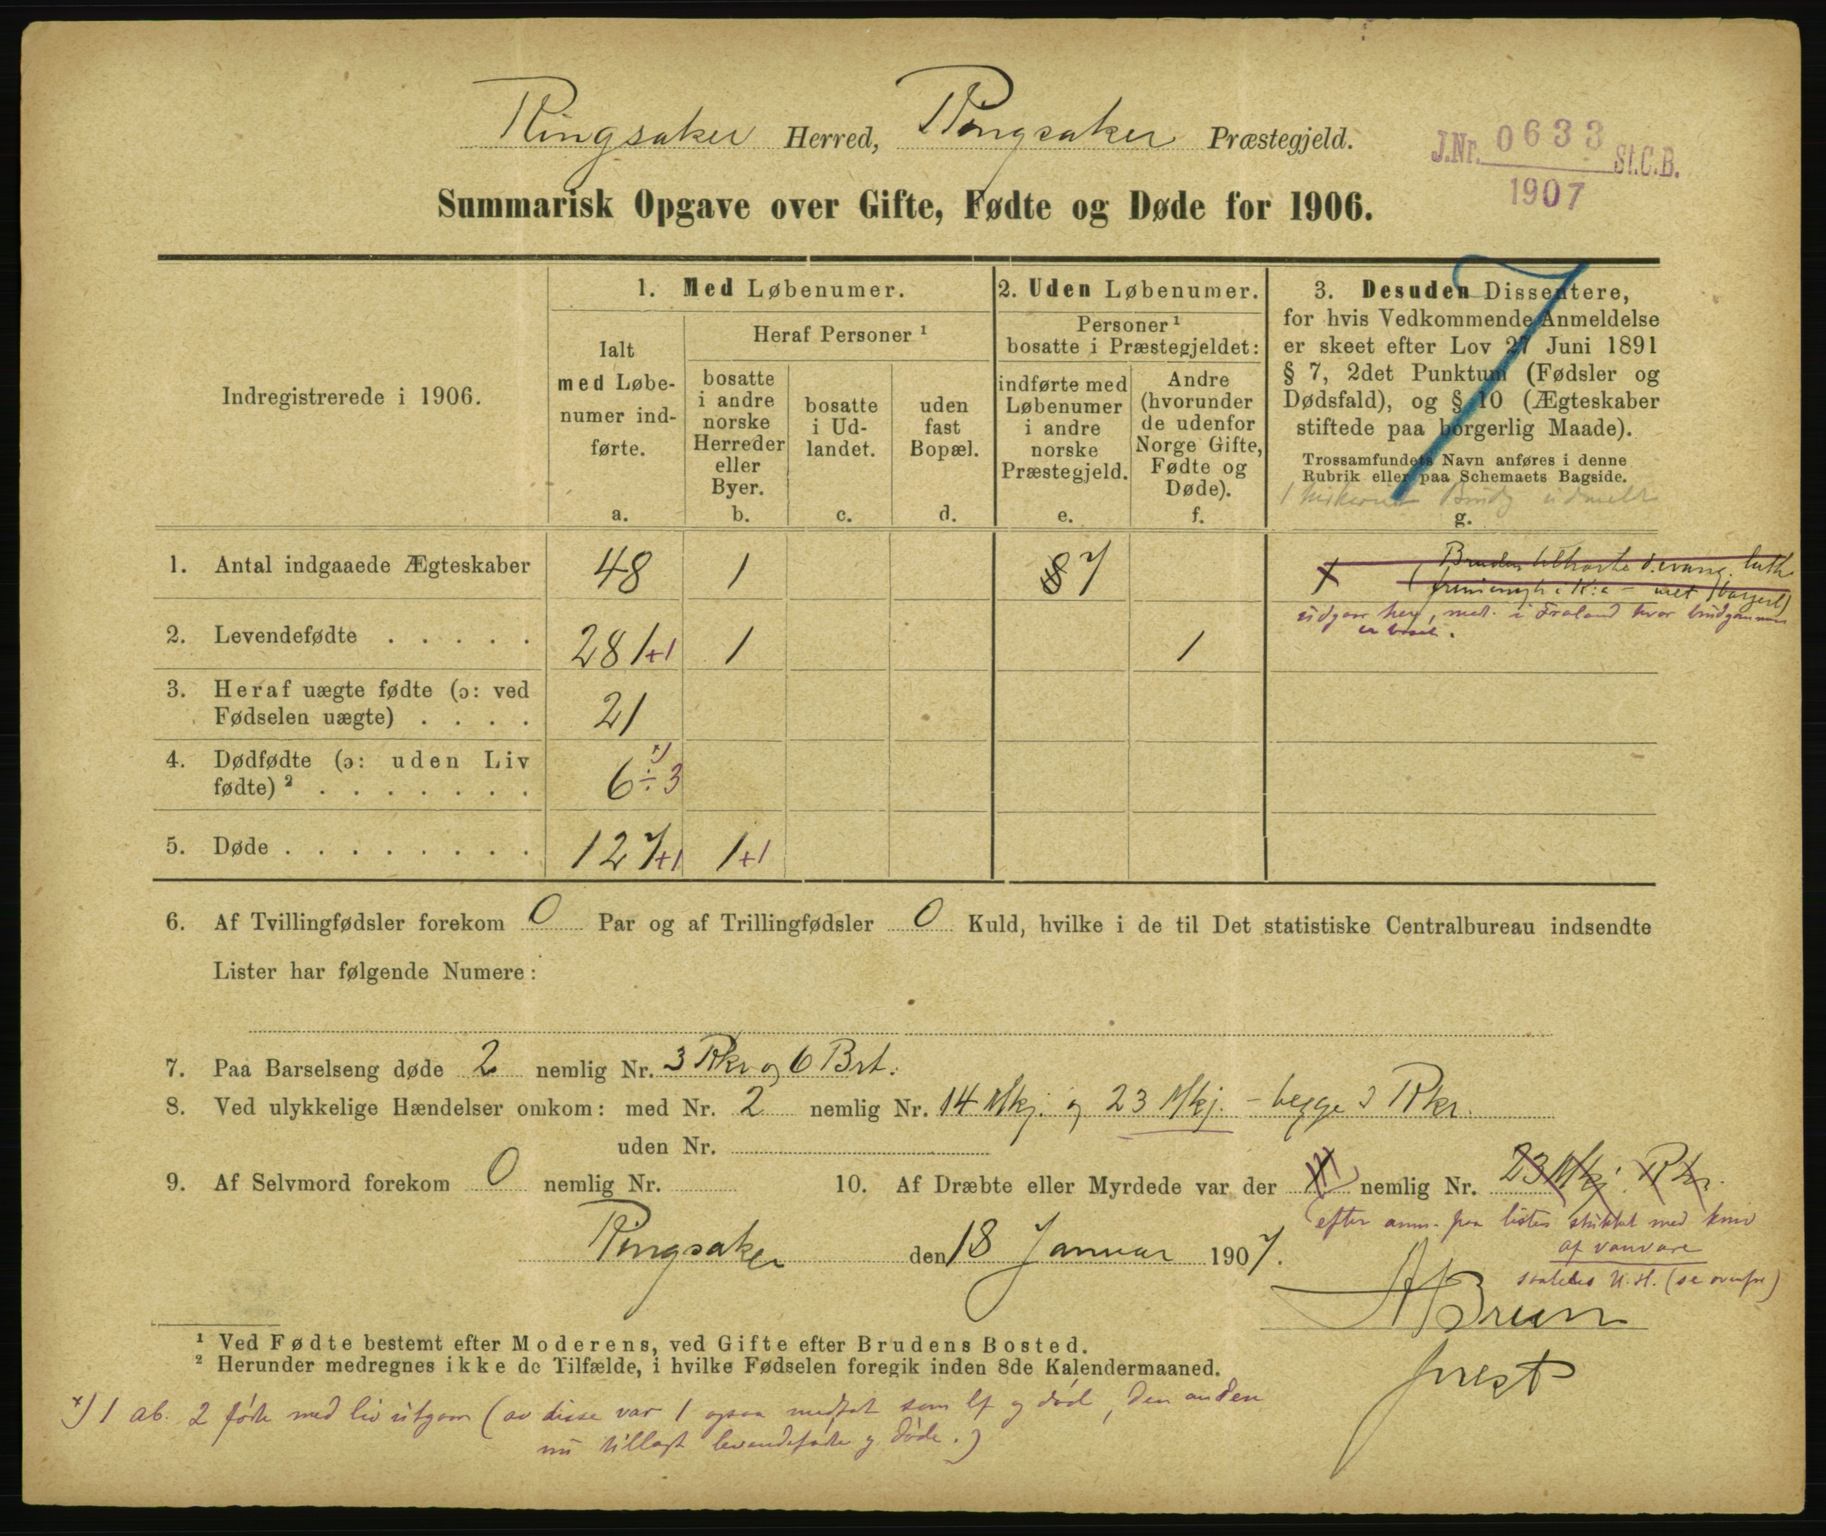 Ringsaker Herred, Ringsaker Præstegjeld.
J.Nr. 0633 St.C.B.
1907
Summarisk Opgave over Gifte, Fødte og Døde for 1906.
Indregistrerede i 1906.
1. Med Løbenumer.
Ialt
med Løbe-
numer ind-
førte.
a.
Heraf Personer ¹
bosatte
i andre
norske
Herreder
eller
Byer.
b.
bosatte
i Ud-
landet.
c.
uden
fast
Bopæl.
d.
2. Uden Løbenumer.
Personer ¹
bosatte i Præstegjeldet:
indførte med
Løbenumer
i andre
norske
Præstegjeld.
e.
Andre
(hvorunder
de udenfor
Norge Gifte,
Fødte og
Døde).
f.
3. Desuden Dissentere,
for hvis Vedkommende Anmeldelse
er skeet efter Lov 27 Juni 1891
§ 7, 2det Punktum (Fødsler og
Dødsfald), og § 10 (Ægteskaber
stiftede paa borgerlig Maade).
Trossamfundets Navn anføres i denne
Rubrik eller paa Schemaets Bagside.
g.
1. Antal indgaaede Ægteskaber 48 1 8 7
Bruden tilhørte d. evang. luth
udgaar her, med. i Froland hvor brudgommen
er bosat.
2. Levendefødte . . . . . 281 +1 1 1
3. Heraf uægte fødte (ɔ: ved
Fødselen uægte) . . . . 21
4. Dødfødte (ɔ: uden Liv
fødte) ² . . . . . . . 6 ÷ 3 *)
5. Døde . . . . . . . . 127 +1 1 +1
6. Af Tvillingfødsler forekom 0 Par og af Trillingfødsler 0 Kuld, hvilke i de til Det statistiske Centralbureau indsendte
Lister har følgende Numere:
7. Paa Barselseng døde 2 nemlig Nr. 3 Rkr og 6 Brt.
8. Ved ulykkelige Hændelser omkom: med Nr. 2 nemlig Nr. 14 Mkj. og 23 Mkj. – begge i Rkr.
uden Nr.
9. Af Selvmord forekom 0 nemlig Nr.
10. Af Dræbte eller Myrdede var der 1 nemlig Nr. 23 Mkj. Rkr.
efter anm. paa listen stukket med kniv
af vanvare
saaledes U.H. (se ovenfor)
Ringsaker den 18 Januar 1907.
A Bruun
prest
¹ Ved Fødte bestemt efter Moderens, ved Gifte efter Brudens Bosted.
² Herunder medregnes ikke de Tilfælde, i hvilke Fødselen foregik inden 8de Kalendermaaned.
*) 1 ab. 2 føдte med liv utgaar (av disse var 1 ogsaa medtat som lf og død, den anden
nu tillagt levendefødte og døde.)